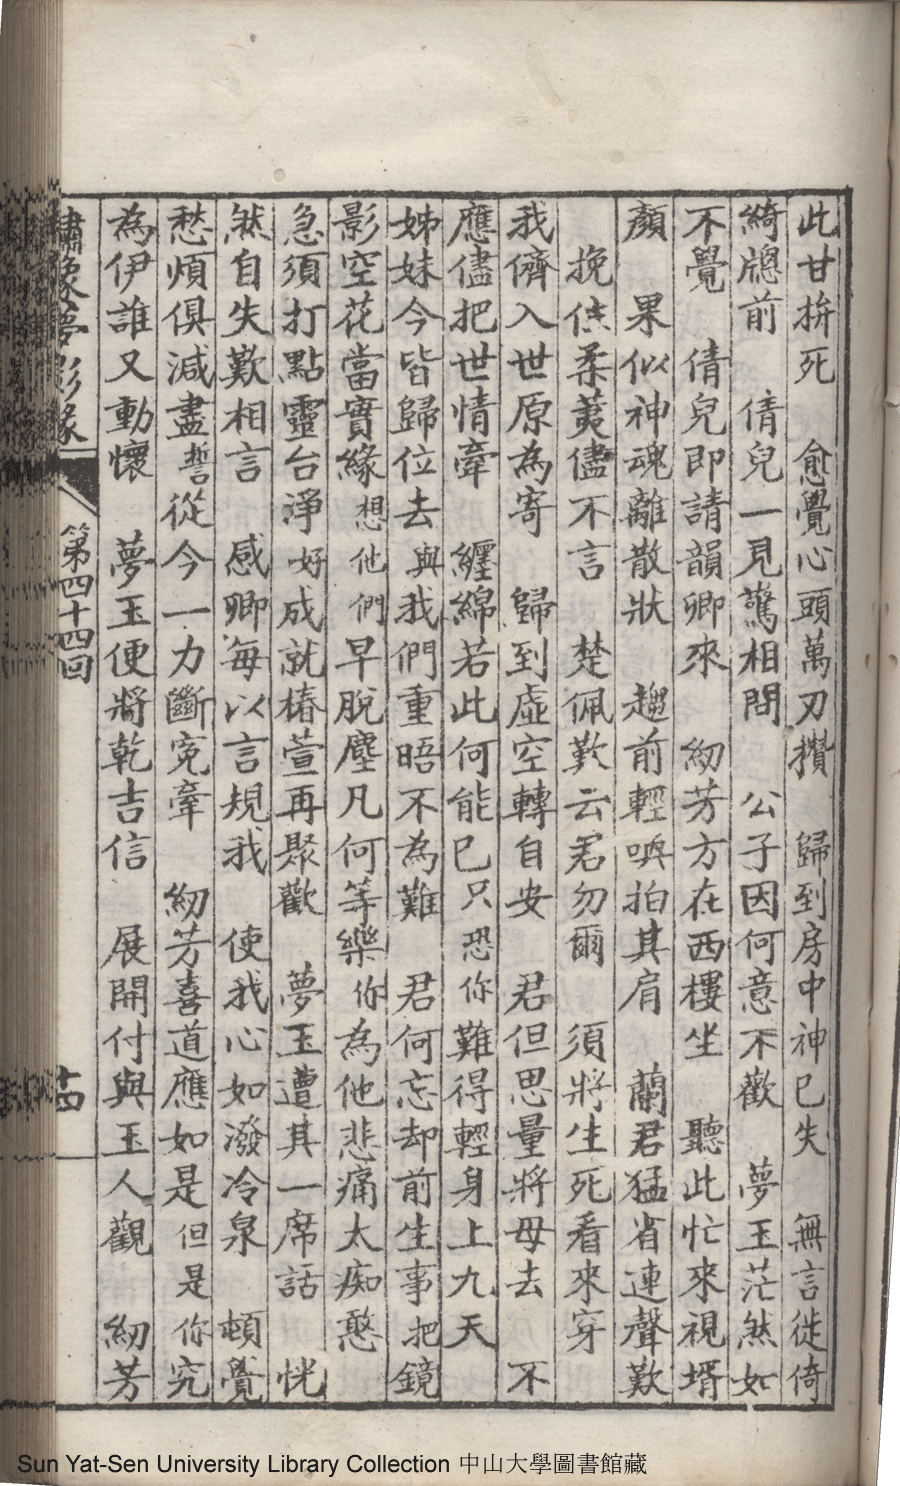 此甘拚死　愈覺心頭萬刃攢　歸到房中神已失　無言徙倚
綺牕前　倩兒一見驚相問　公子因何意不歡　夢玉茫然如
不覺　倩兒即請韻卿來　紉芳方在西樓坐　聽此忙來視壻
顏　果似神魂離散狀　趨前輕喚拍其肩　蘭君猛省連聲歎
挽伊柔荑儘不言　楚佩歎云君勿爾　須將生死看來穿
我儕入世原為寄　歸到虛空轉自安　君但思量將母去　不
應儘把世情牽　纏綿若此何能已只恐你難得輕身上九天
姊妹今皆歸位去與我們重晤不為難　君何忘却前生事把鏡
影空花當實緣想他們早脫塵凡何等樂你為他悲痛太痴憨
急須打點靈台淨好成就椿萱再聚歡　夢玉遭其一席話　恍
然自失歎相言　感卿每以言規我　使我心如潑冷泉　頓覺
愁煩俱減盡誓從今一力斷寃牽　紉芳喜道應如是但是你究
為伊誰又動懷　夢玉便將乾吉信　展開付與玉人觀　紉芳
繡像夢影緣　第四十四回　十四
Sun Yat-Sen University Library Collection 中山大學圖書館藏